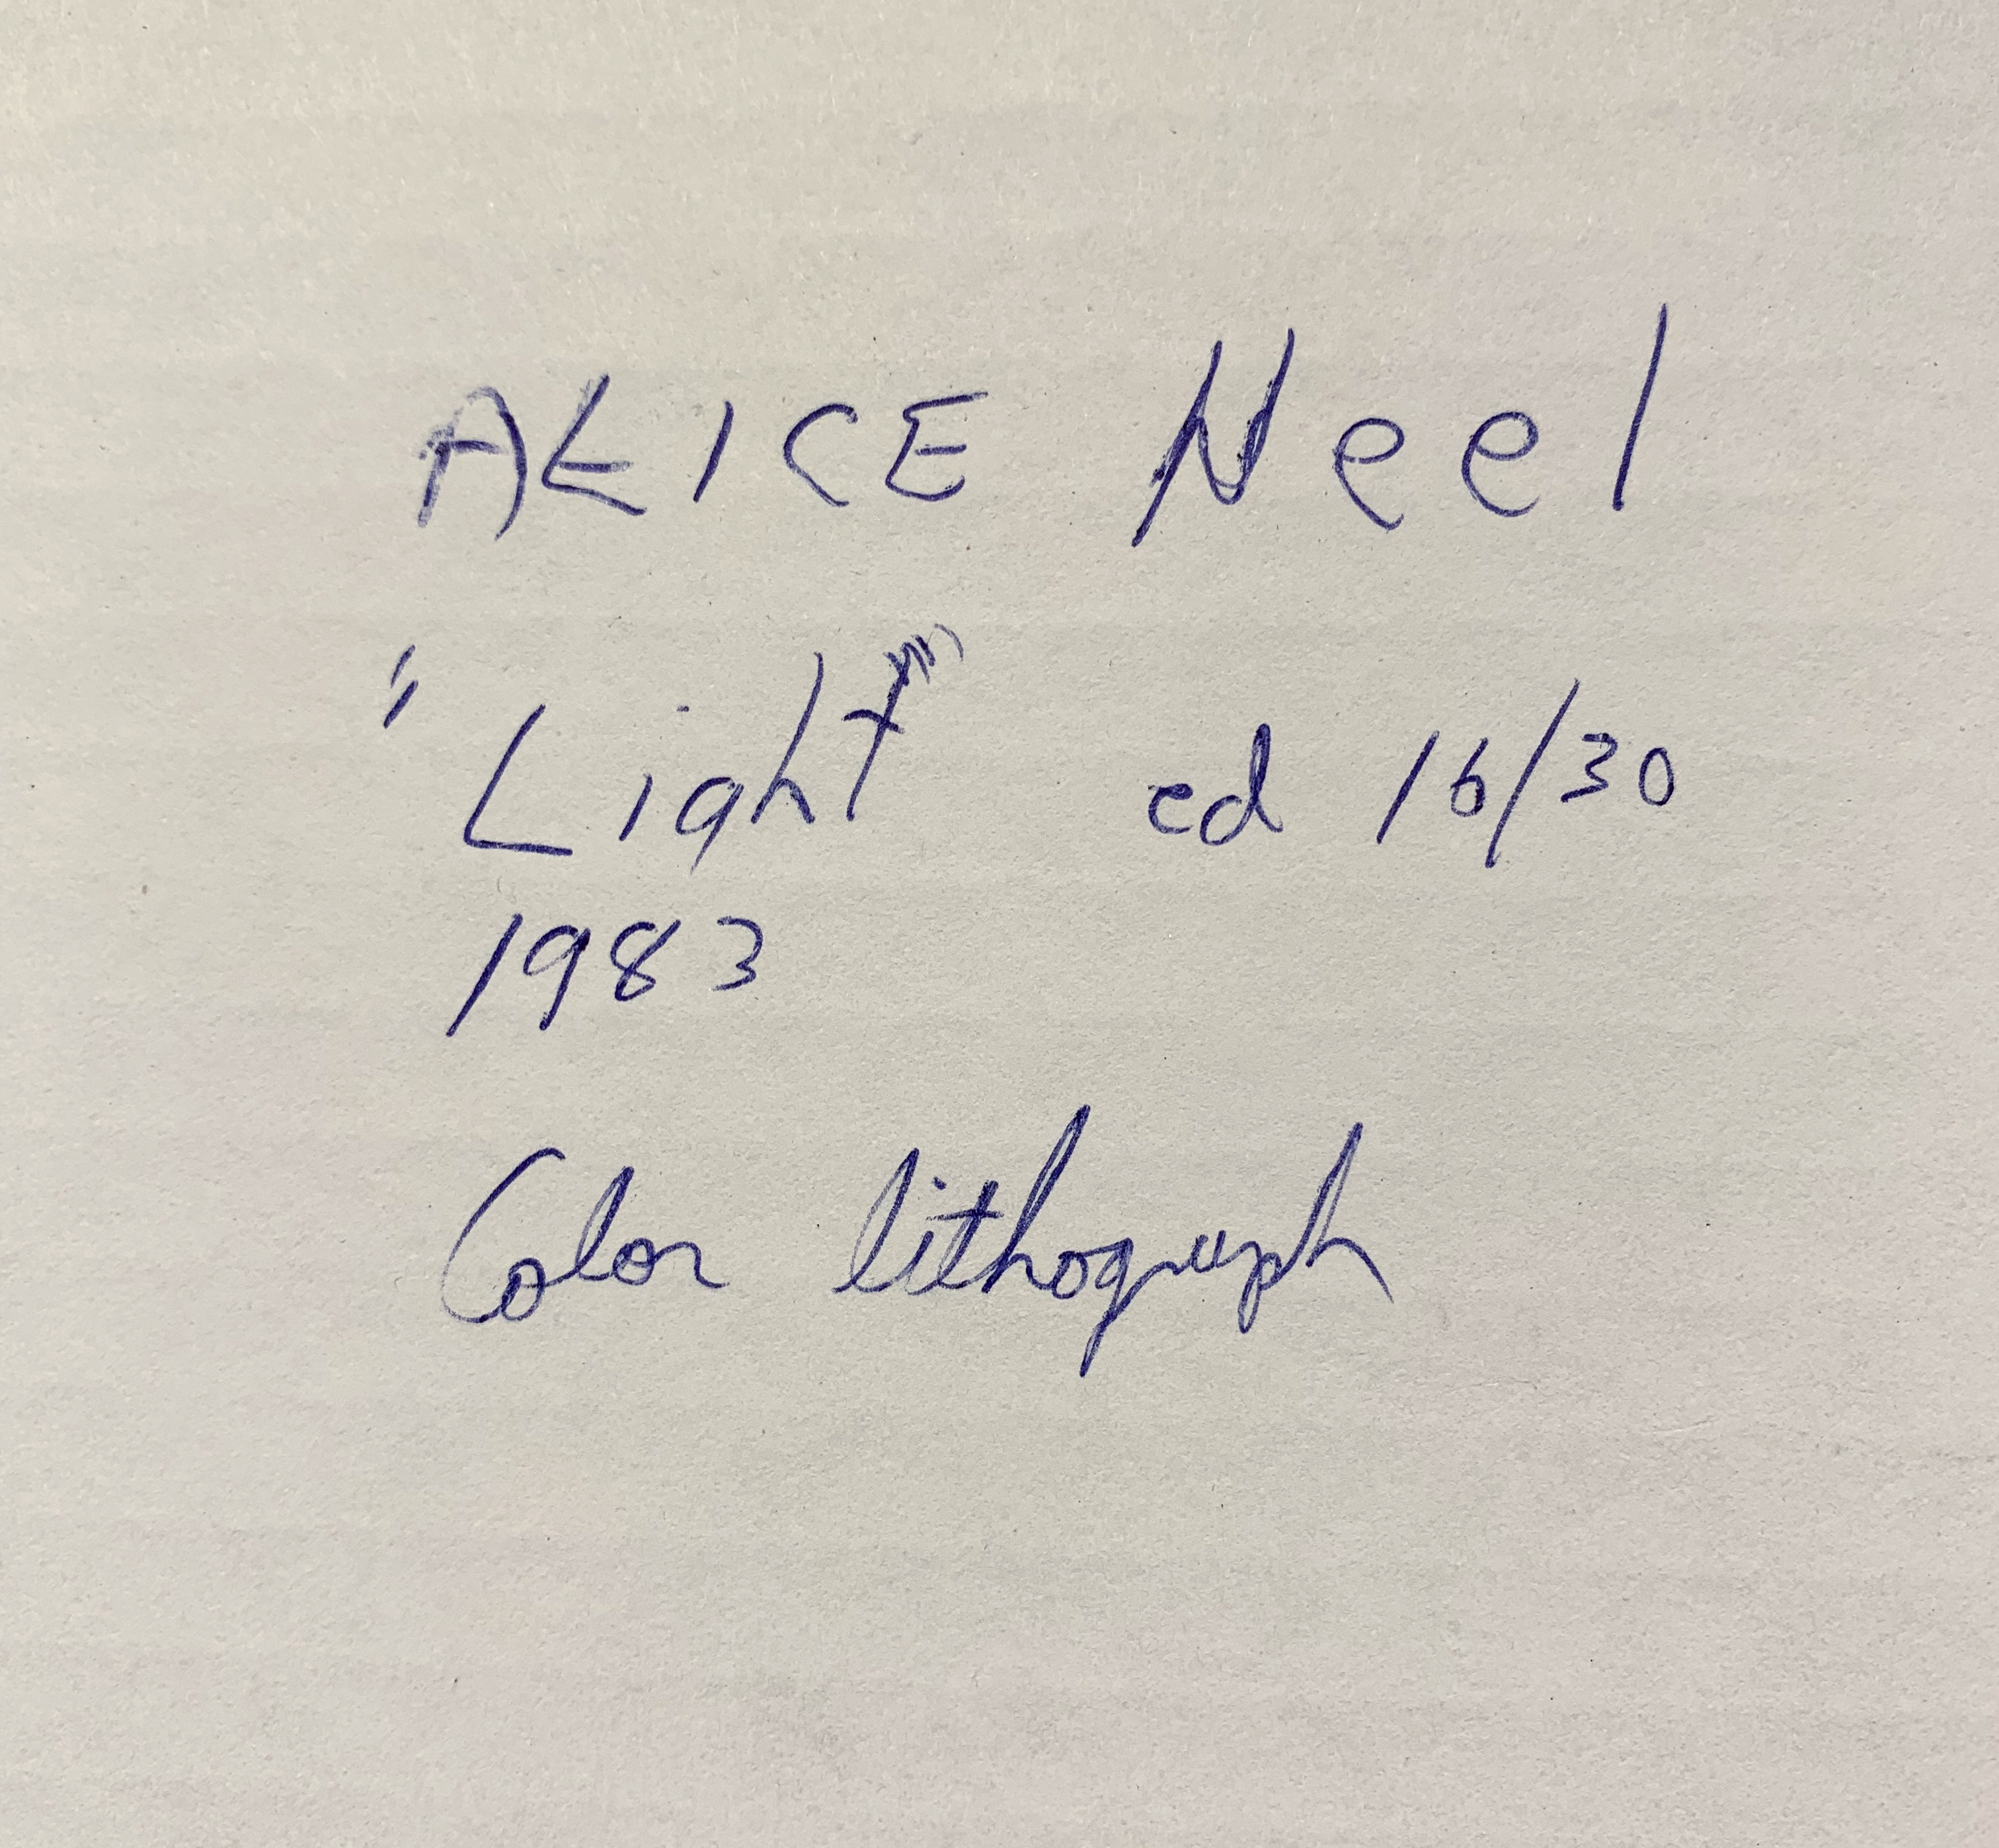 ALICE Neel
"Light" ed 16/30
1983
Color lithograph